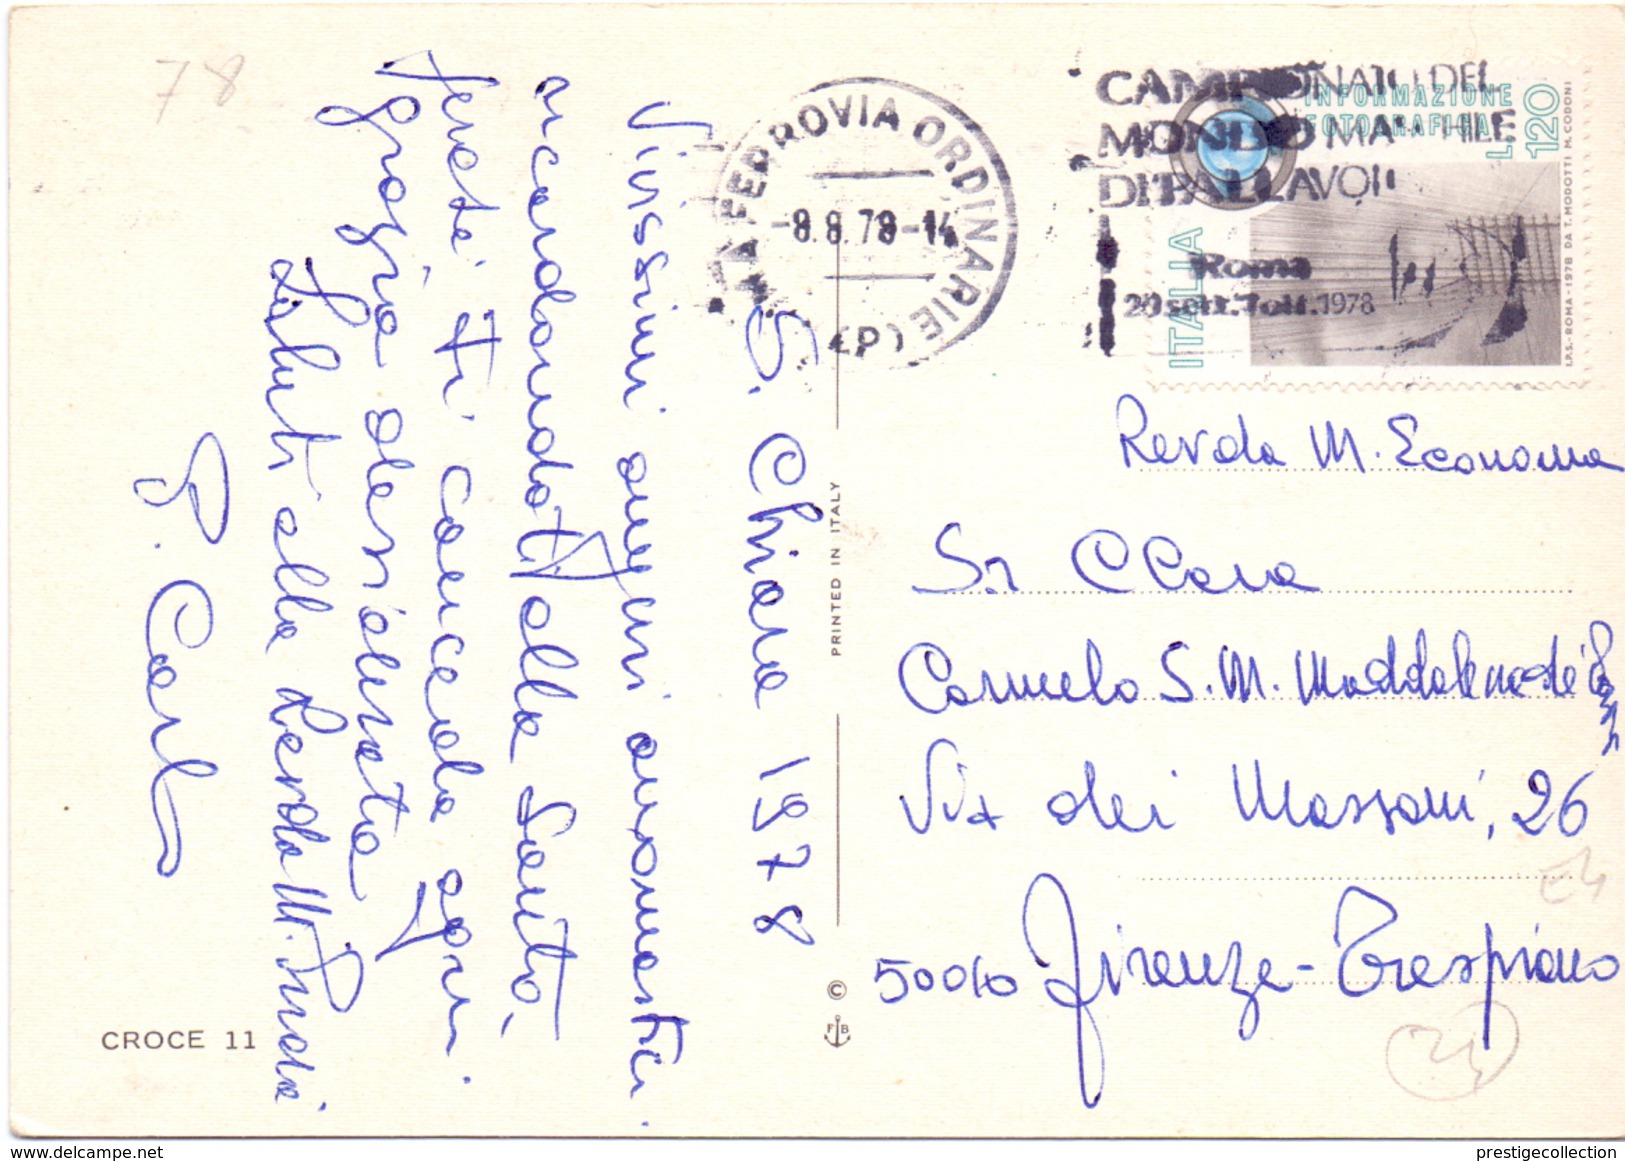 78
S. Chiara 1978
Vivissimi auguri onomastici
raccomandati alla Santità,
Gesù ti conceda ogni
grazia desiderata
Saluti alla Revda M.
P. Carlo
CROCE 11
PRINTED IN ITALY
©
F B
ROMA FERROVIA ORDINARIE (P)
-8.8.78-14
CAMPIONATO DEL
MONDO MASCHILE
DI PALLAVOLO
Roma
20 sett. 7 ott. 1978
INFORMAZIONE
FOTOGRAFICA
L. 120
ITALIA
I.P.S.-ROMA-1978 DA T. MODOTTI M. CODONI
Revda M. Economa
Sr Clara
Carmelo S. M. Maddalena de' Pazzi
Via dei Massoni, 26
50010 Firenze - Trespiano
www.delcampe.net
prestigecollection